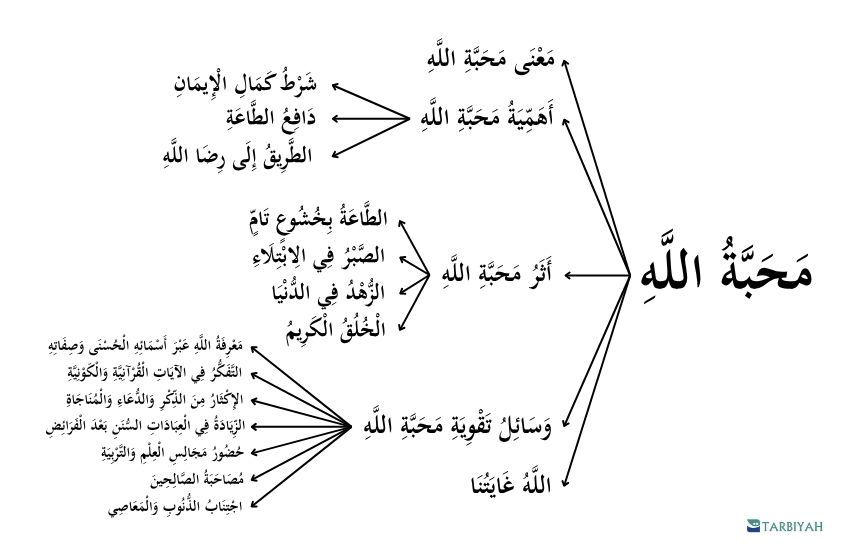 مَحَبَّةُ اللَّهِ
مَعْنَى مَحَبَّةِ اللَّهِ
أَهَمِّيَةُ مَحَبَّةِ اللَّهِ
شَرْطُ كَمَالِ الْإِيمَانِ
دَافِعُ الطَّاعَةِ
الطَّرِيقُ إِلَى رِضَا اللَّهِ
أَثَرُ مَحَبَّةِ اللَّهِ
الطَّاعَةُ بِخُشُوعٍ تَامٍّ
الصَّبْرُ فِي الِابْتِلَاءِ
الزُّهْدُ فِي الدُّنْيَا
الْخُلُقُ الْكَرِيمُ
وَسَائِلُ تَقْوِيَةِ مَحَبَّةِ اللَّهِ
مَعْرِفَةُ اللَّهِ عَبْرَ أَسْمَائِهِ الْحُسْنَى وَصِفَاتِهِ
التَّفَكُّرُ فِي الآيَاتِ الْقُرْآنِيَّةِ وَالْكَوْنِيَّةِ
الإِكْثَارُ مِنَ الذِّكْرِ وَالدُّعَاءِ وَالْمُنَاجَاةِ
الزِّيَادَةُ فِي الْعِبَادَاتِ السُّنَنِ بَعْدَ الْفَرَائِضِ
حُضُورُ مَجَالِسِ الْعِلْمِ وَالتَّرْبِيَةِ
مُصَاحَبَةُ الصَّالِحِينَ
اجْتِنَابُ الذُّنُوبِ وَالْمَعَاصِي
اللَّهُ غَايَتُنَا
TARBIYAH